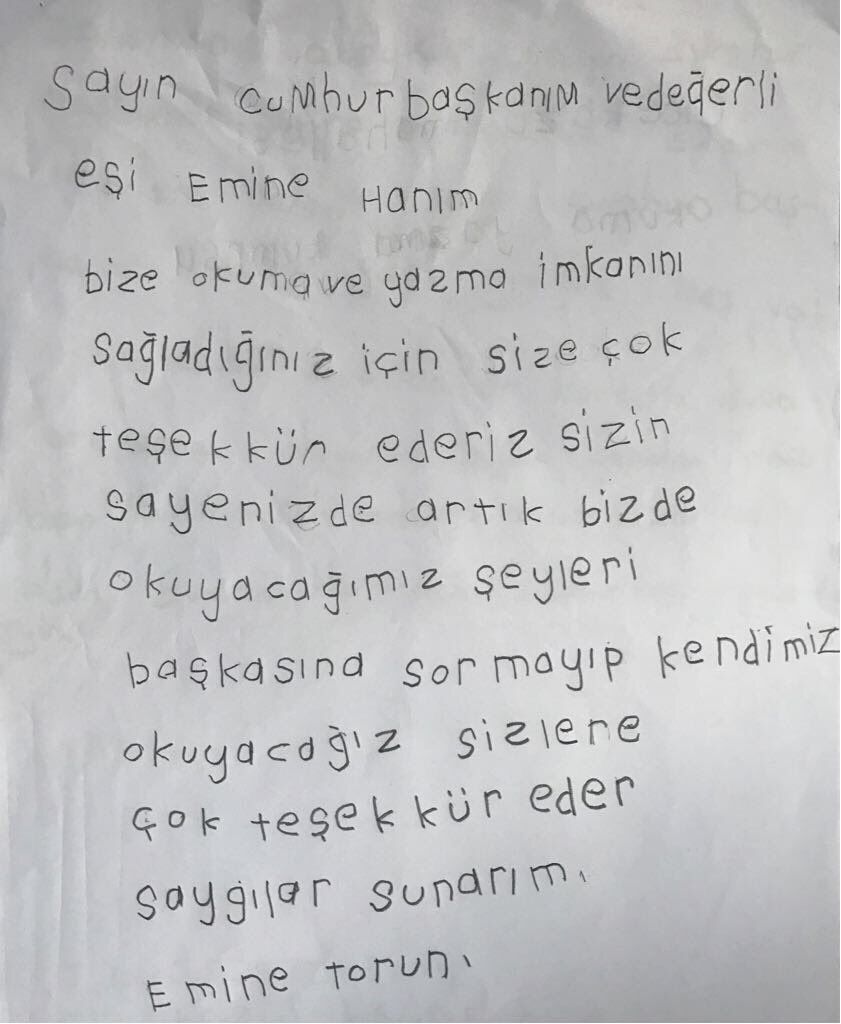 Sayın cumhurbaşkanım vedeğerli
eşi Emine Hanım
bize okuma ve yazma imkanını
sağladığınız için size çok
teşekkür ederiz sizin
sayenizde artık bizde
okuyacağımız şeyleri
başkasına sormayıp kendimiz
okuyacağız sizlere
çok teşekkür eder
saygılar sunarım.
Emine torun.